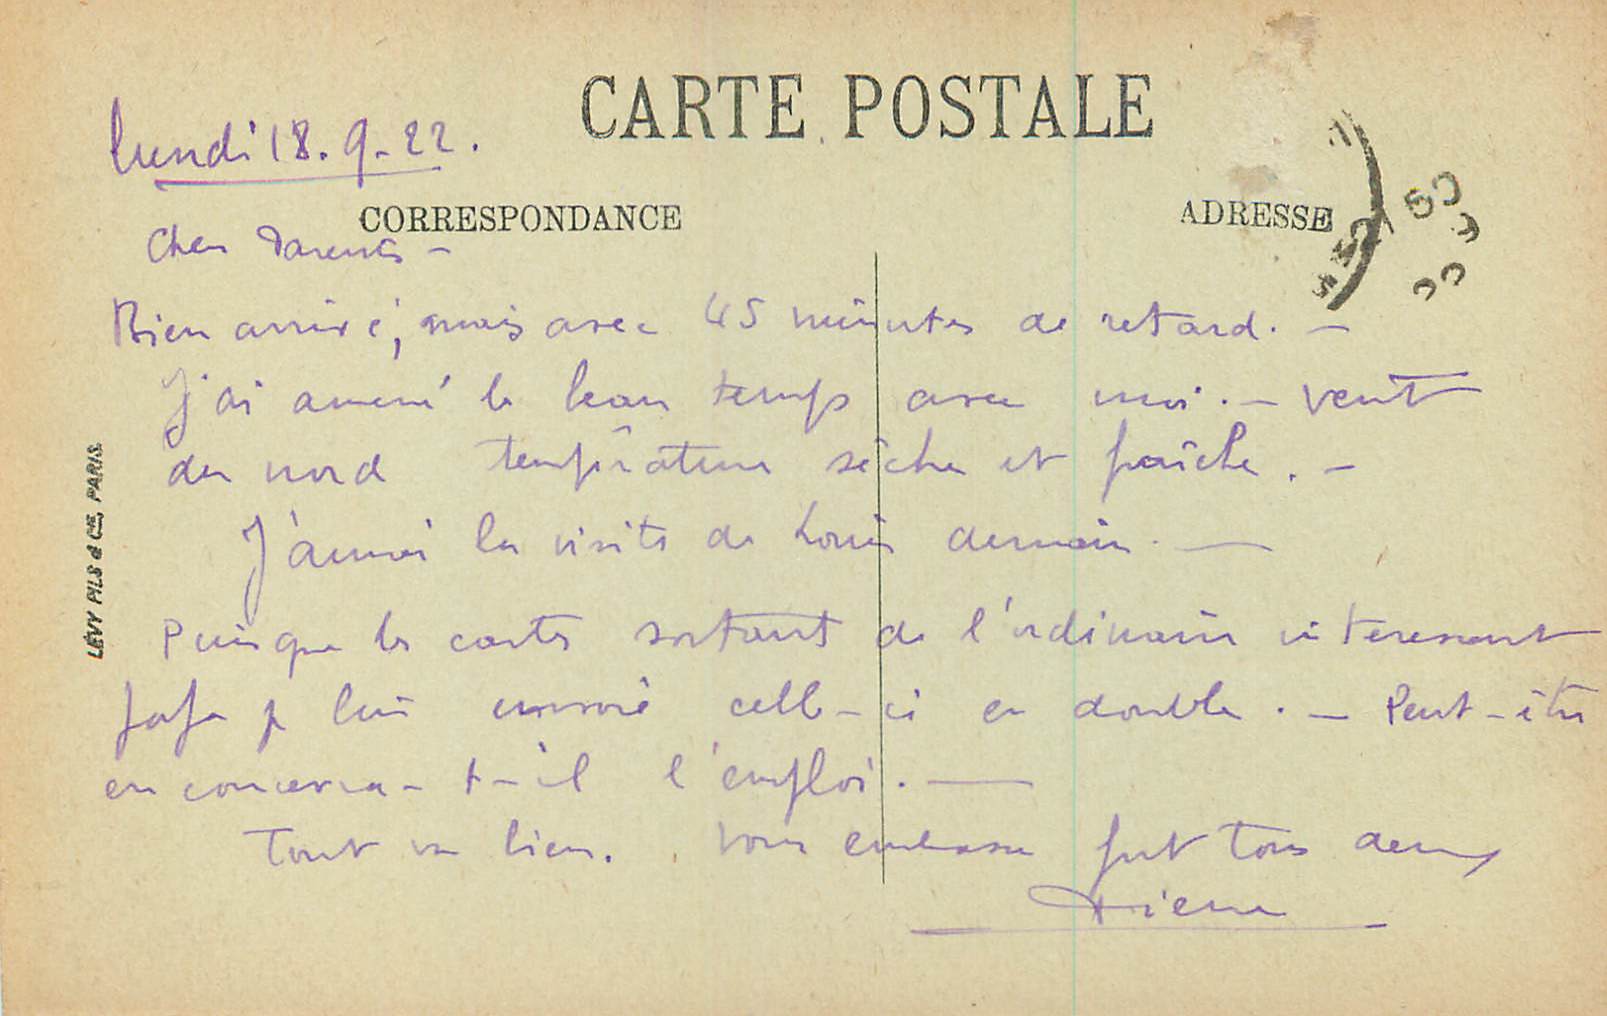 CARTE POSTALE
lundi 18.9.22.
CORRESPONDANCE
ADRESSE
Chers Parents –
Bien arrivé, mais avec 45 minutes de retard. –
J'ai amené le beau temps avec moi. – Vent
du nord température sèche et fraîche. –
J'aurai la visite de Louis demain. —
Puisque les cartes sortant de l'ordinaire intéressent
je lui envoie celle-ci en double. – Peut-être
en concevra-t-il l'emploi. —
Tout va bien. Vous embrasse fort tous deux
Pierre
LÉVY FILS & CIE, PARIS